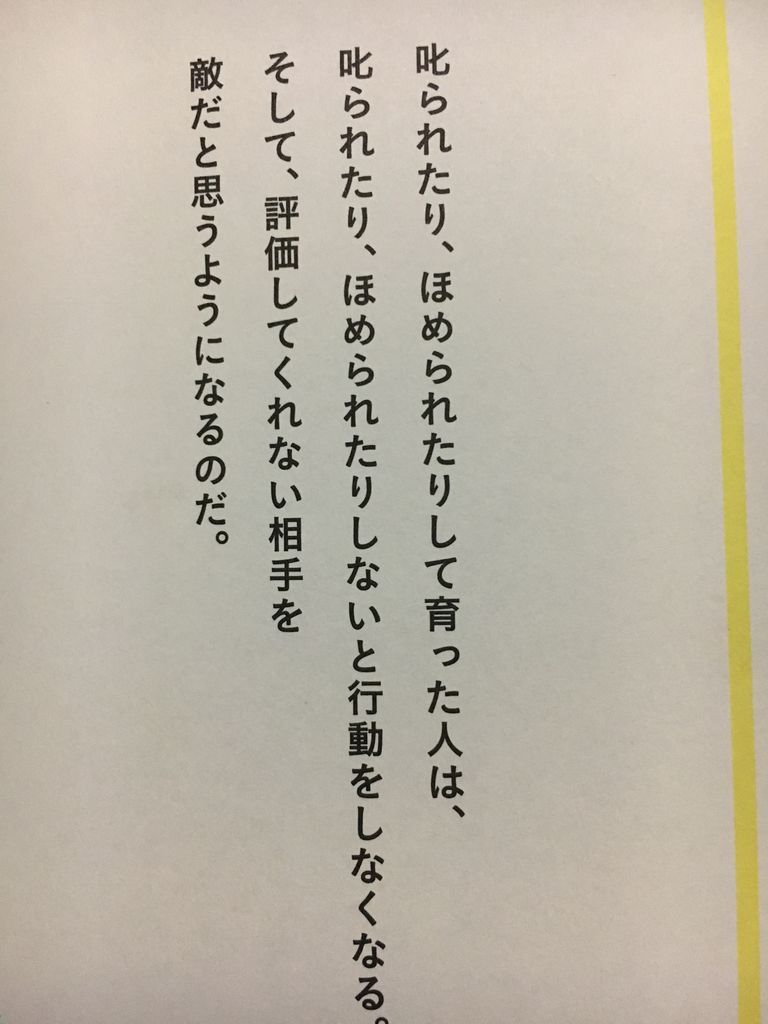 叱られたり、ほめられたりして育った人は、
叱られたり、ほめられたりしないと行動をしなくなる。
そして、評価してくれない相手を
敵だと思うようになるのだ。